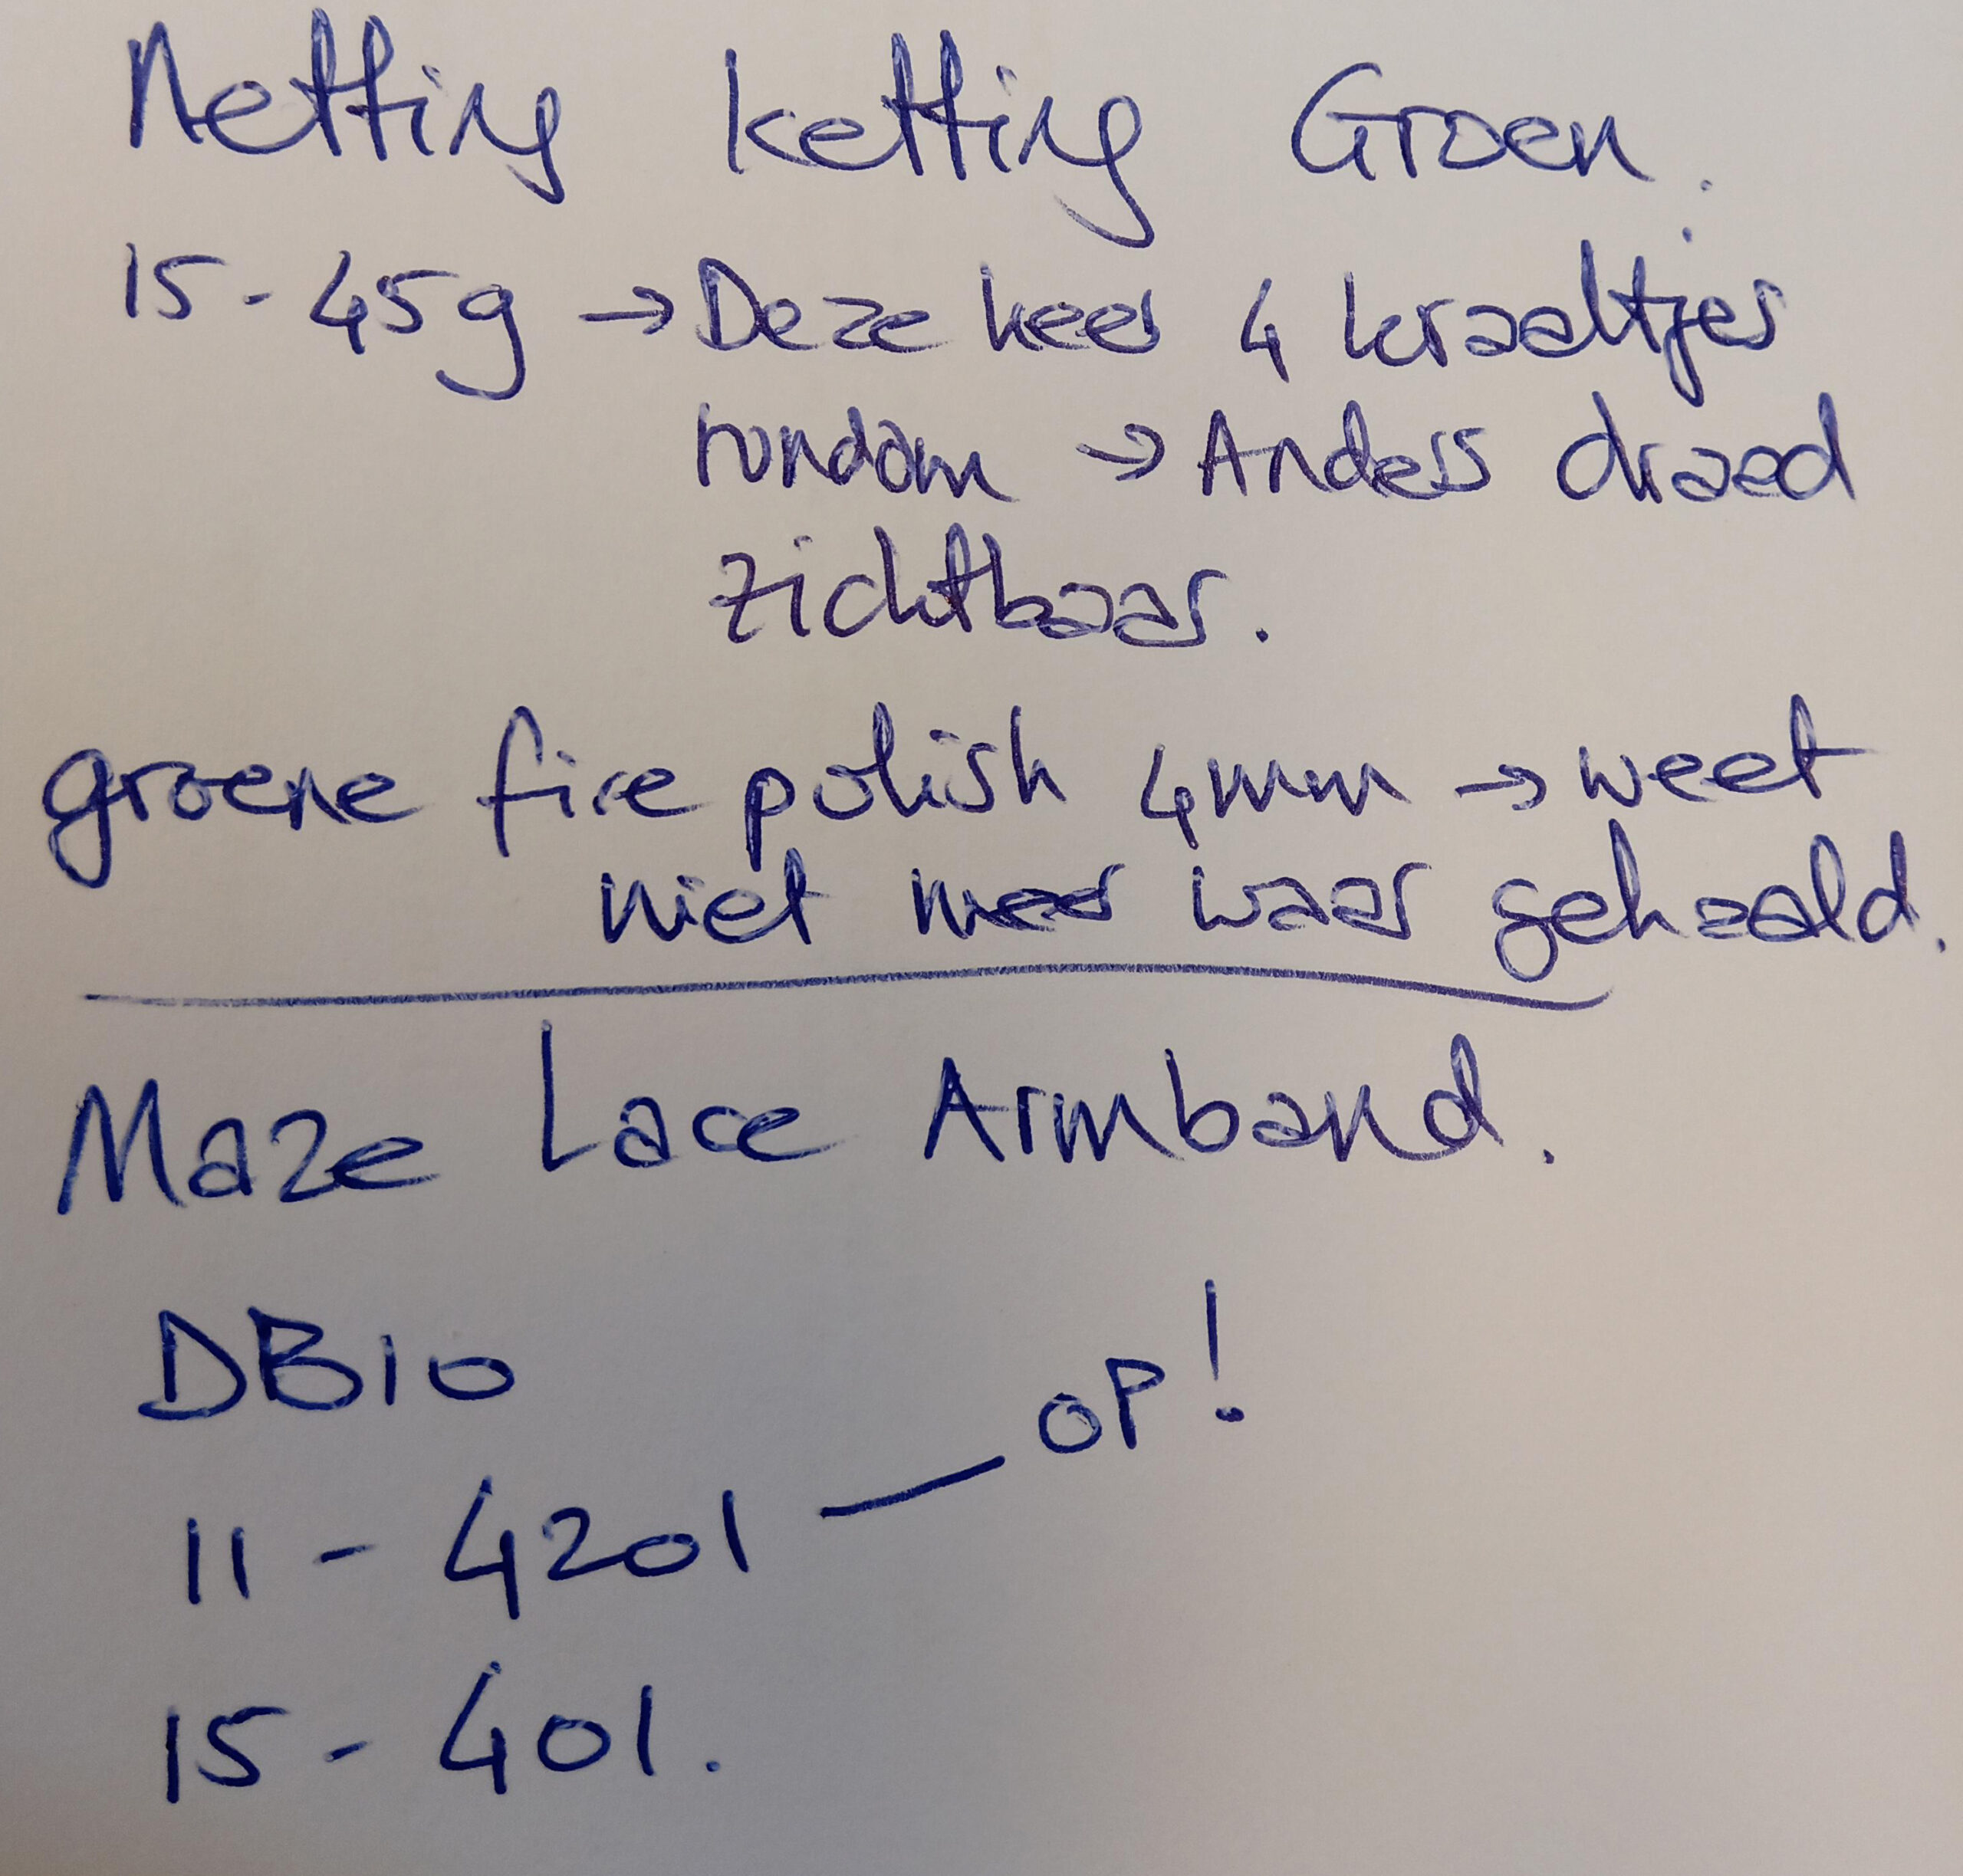 Netting ketting Groen.
15 - 459 → Deze keer 4 kraaltjes
rondom → Anders draad
zichtbaar.
groene fire polish 4mm → weet
niet meer waar gehaald.
Maze Lace Armband.
DB10
op!
11 - 4201 —
15 - 401.